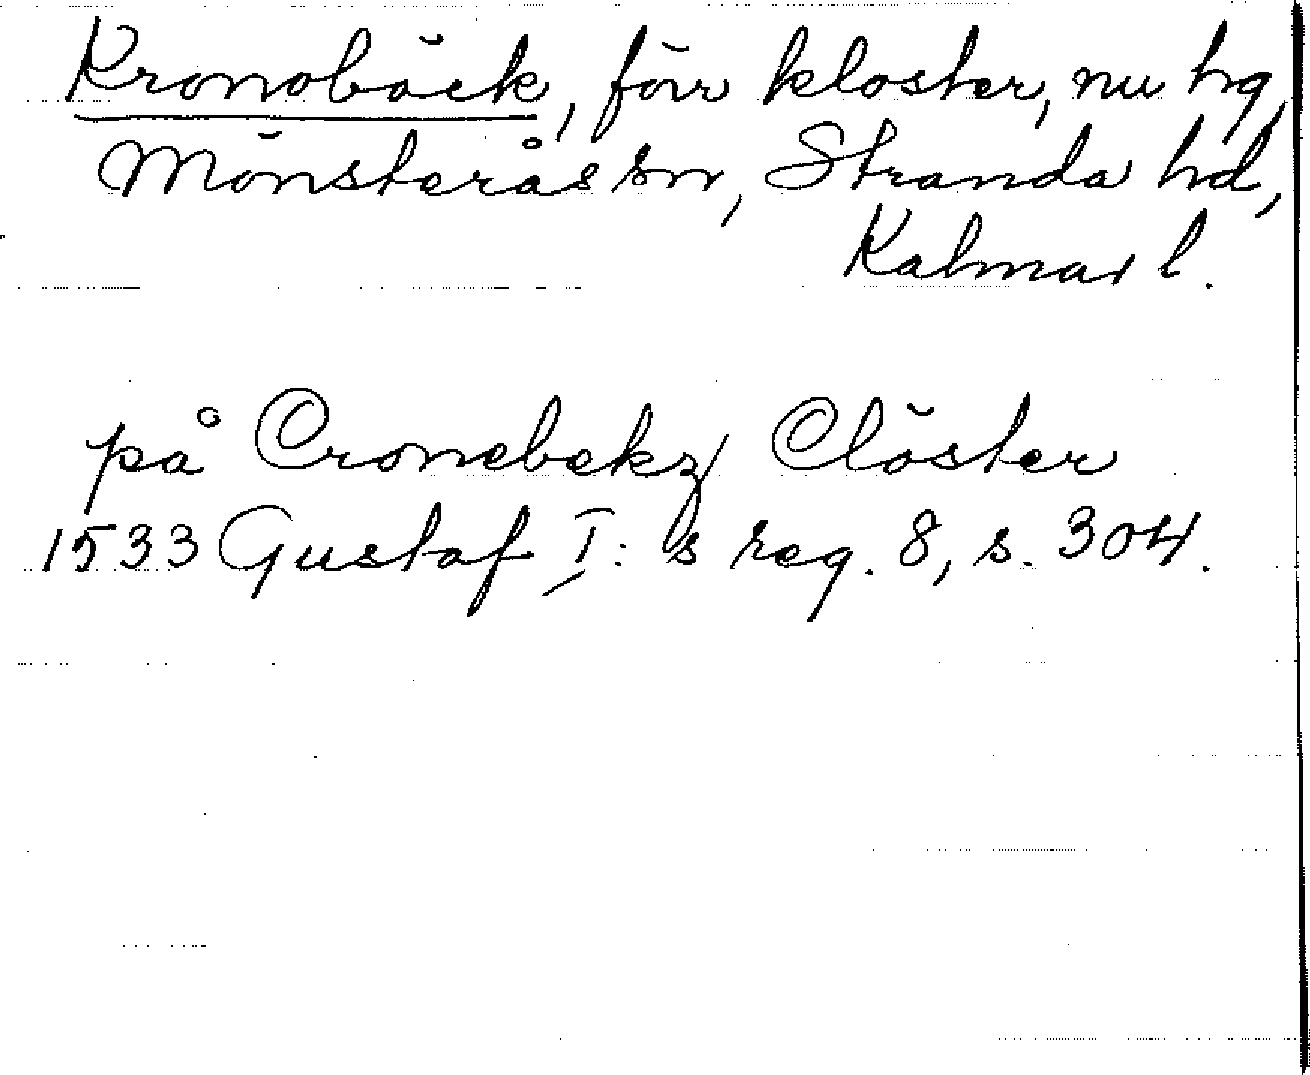 Kronobäck, förr kloster, nu hg,
Mönsterås sn, Stranda hd,
Kalmar l.
på Cronebekz Clöster
1533 Gustaf I:s reg. 8, s. 304.